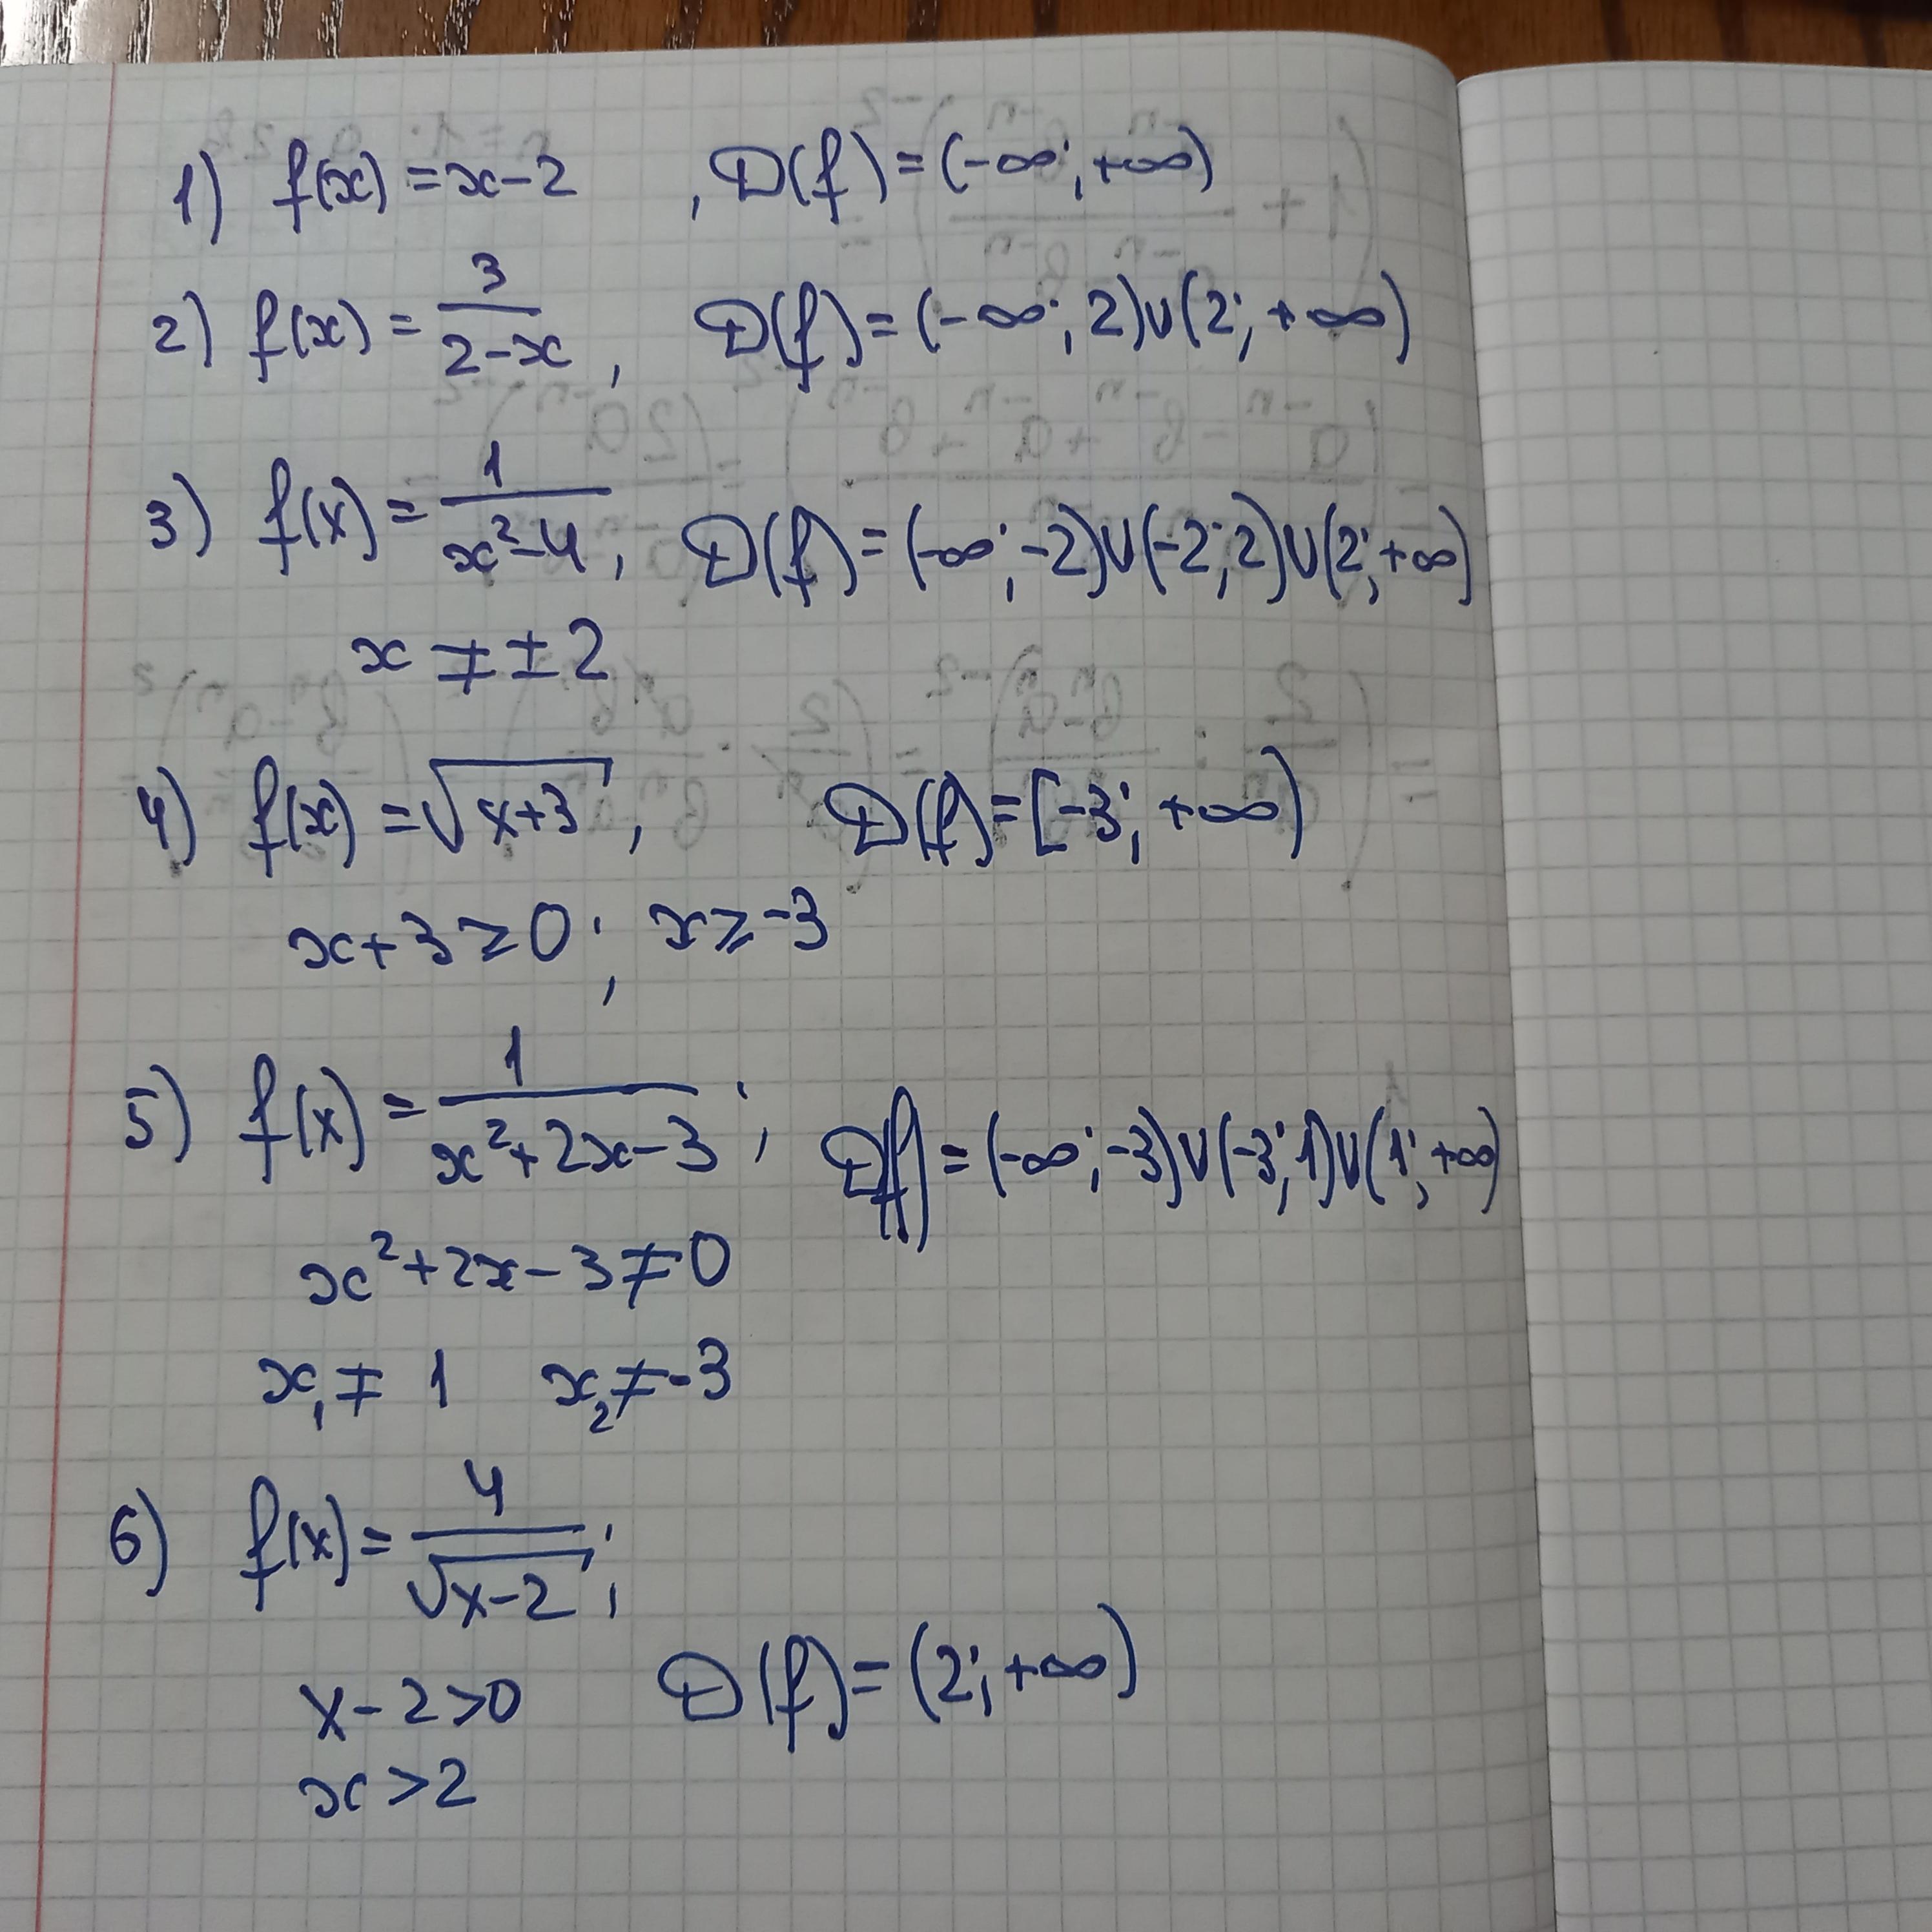 1) f(x) = x-2 , D(f) = (-∞; +∞)
2) f(x) = 3/(2-x), D(f) = (-∞; 2)∪(2; +∞)
3) f(x) = 1/(x²-4), D(f) = (-∞; -2)∪(-2; 2)∪(2; +∞)
x ≠ ±2
4) f(x) = √(x+3), D(f) = [-3; +∞)
x+3 ≥ 0; x ≥ -3
5) f(x) = 1/(x²+2x-3); D(f) = (-∞; -3)∪(-3; 1)∪(1; +∞)
x²+2x-3 ≠ 0
x₁ ≠ 1 x₂ ≠ -3
6) f(x) = 4/√(x-2);
x-2>0 D(f) = (2; +∞)
x>2